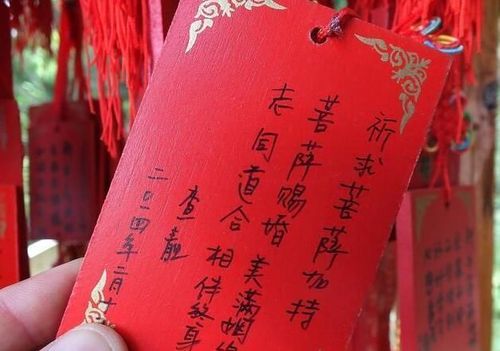 祈求菩萨加持
菩萨赐婚 美满姻缘
志同道合 相伴终身
查
二〇一四年二月十